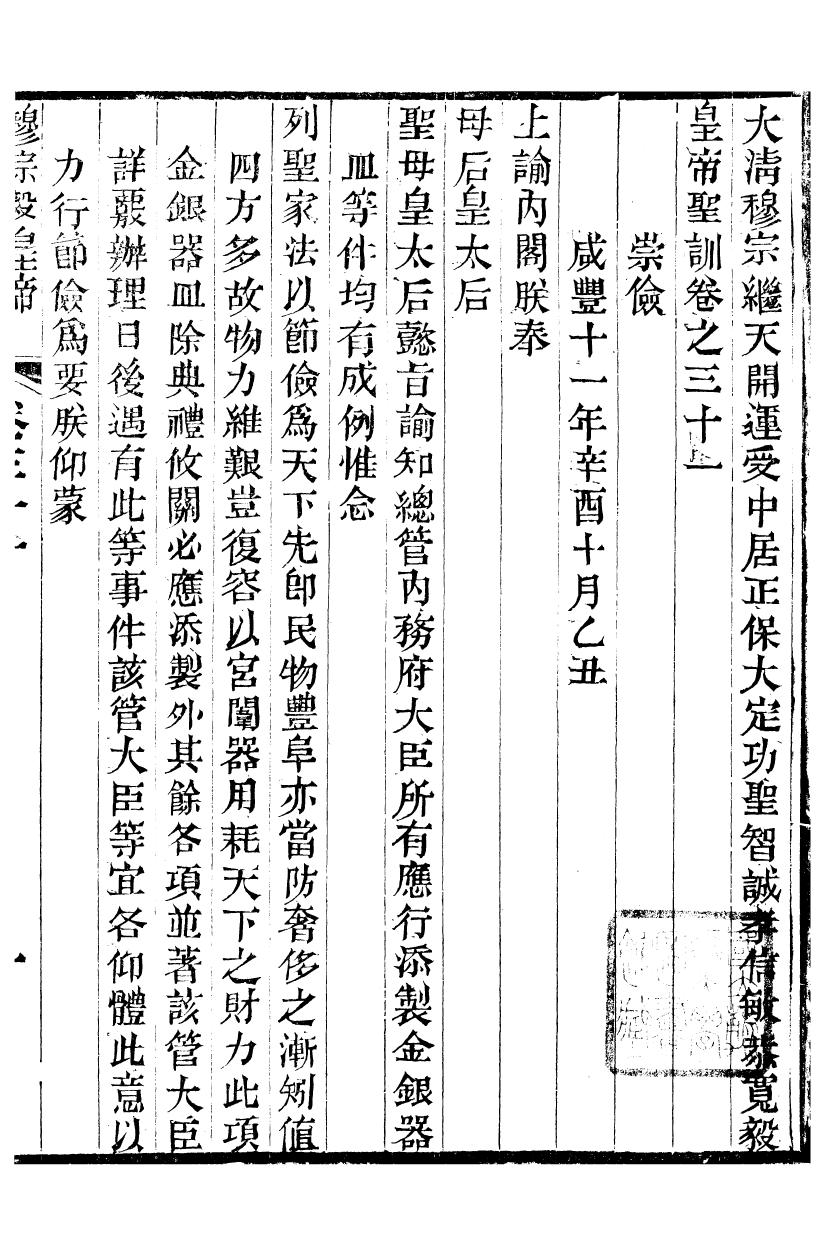 大清穆宗繼天開運受中居正保大定功聖智誠孝信敏恭寬毅
皇帝聖訓卷之三十一
崇儉
咸豐十一年辛酉十月乙丑
上諭內閣朕奉
母后皇太后
聖母皇太后懿旨諭知總管內務府大臣所有應行添製金銀器
皿等件均有成例惟念
列聖家法以節儉爲天下先卽民物豐阜亦當防奢侈之漸矧值
四方多故物力維艱豈復容以宮闈器用耗天下之財力此項
金銀器皿除典禮攸關必應添製外其餘各項並著該管大臣
詳覈辦理日後遇有此等事件該管大臣等宜各仰體此意以
力行節儉爲要朕仰蒙
穆宗毅皇帝